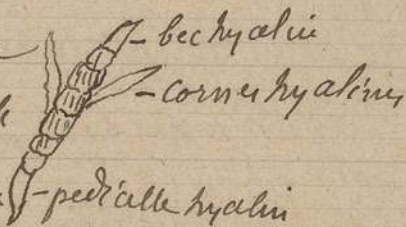 bec hyalin
cornes hyalines
pédicelle hyalin